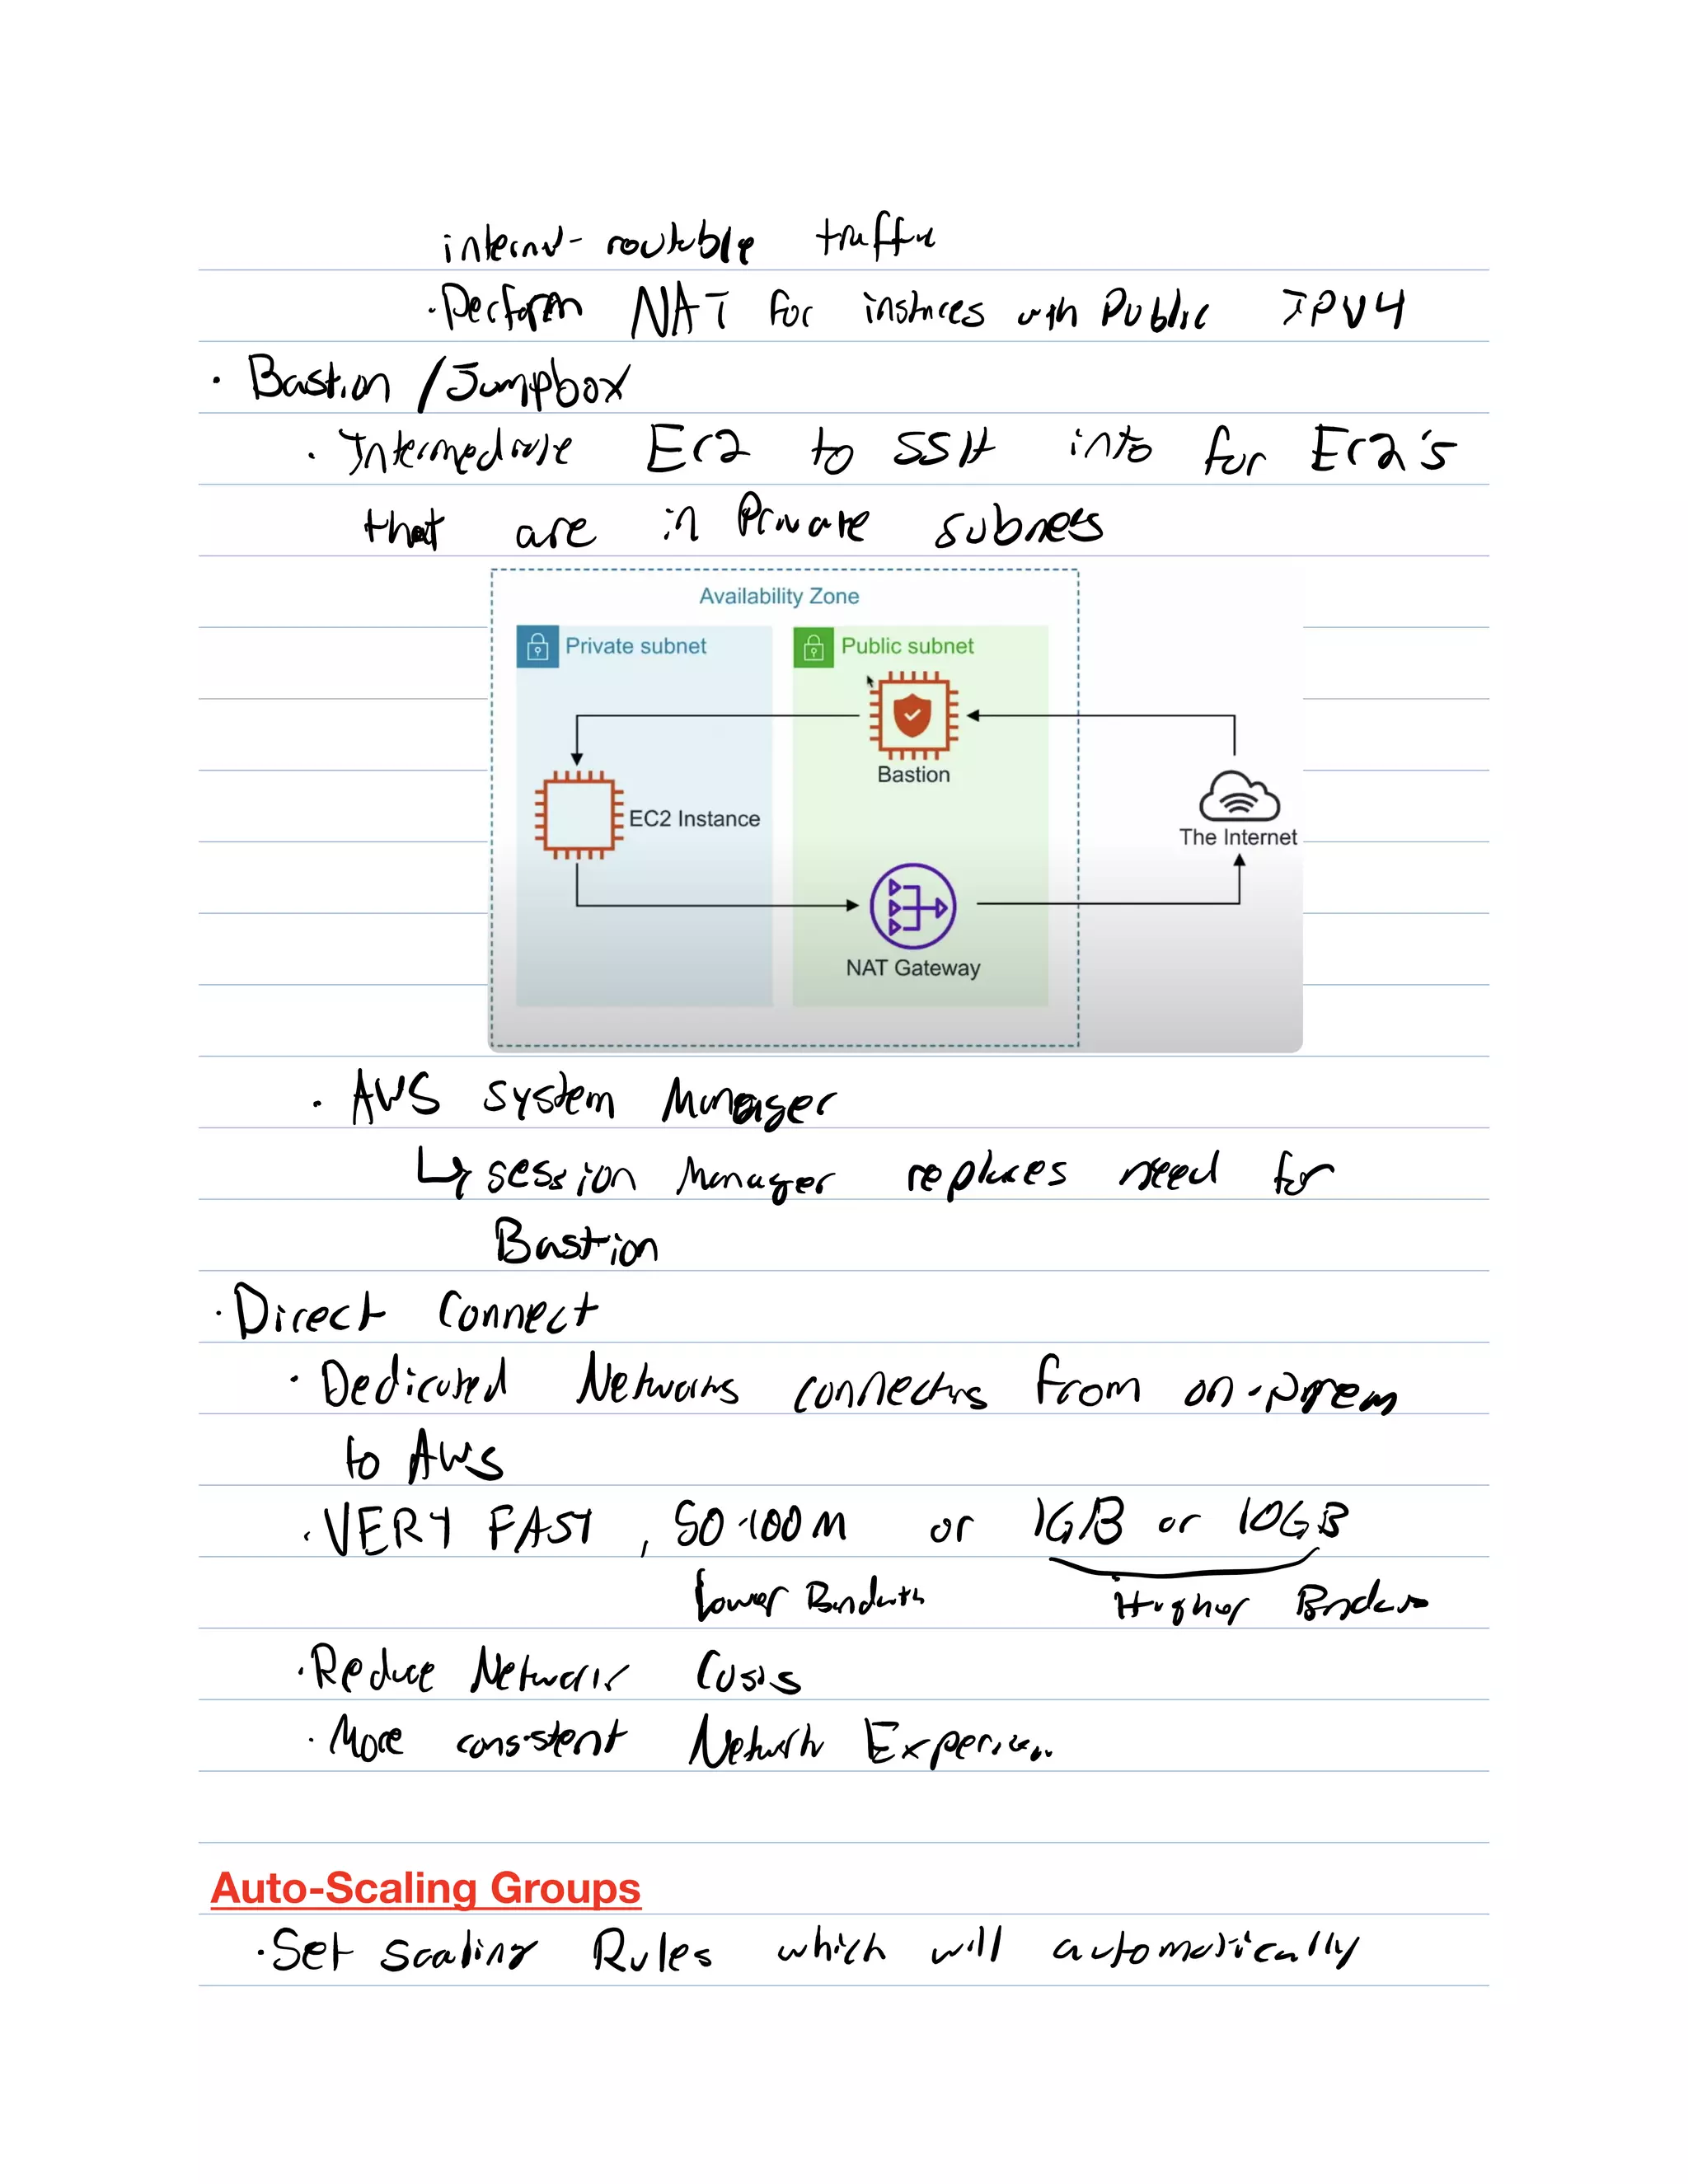 internet-routable traffic
· Perform NAT for instances with Public IPV4
· Bastion / Jumpbox
· Intermediate EC2 to SSH into for EC2's
that are in Private subnets
Availability Zone
Private subnet
Public subnet
Bastion
EC2 Instance
The Internet
NAT Gateway
· AWS system Manager
↳ session Manager replaces need for
Bastion
· Direct Connect
· Dedicated Networks connections from on-prem
to AWS
· VERY FAST, 50-100M or 1GB or 10GB
lower Bandwidth Higher Bandwidth
· Reduce Network Costs
· More consistent Network Experience
Auto-Scaling Groups
· Set scaling Rules which will automatically